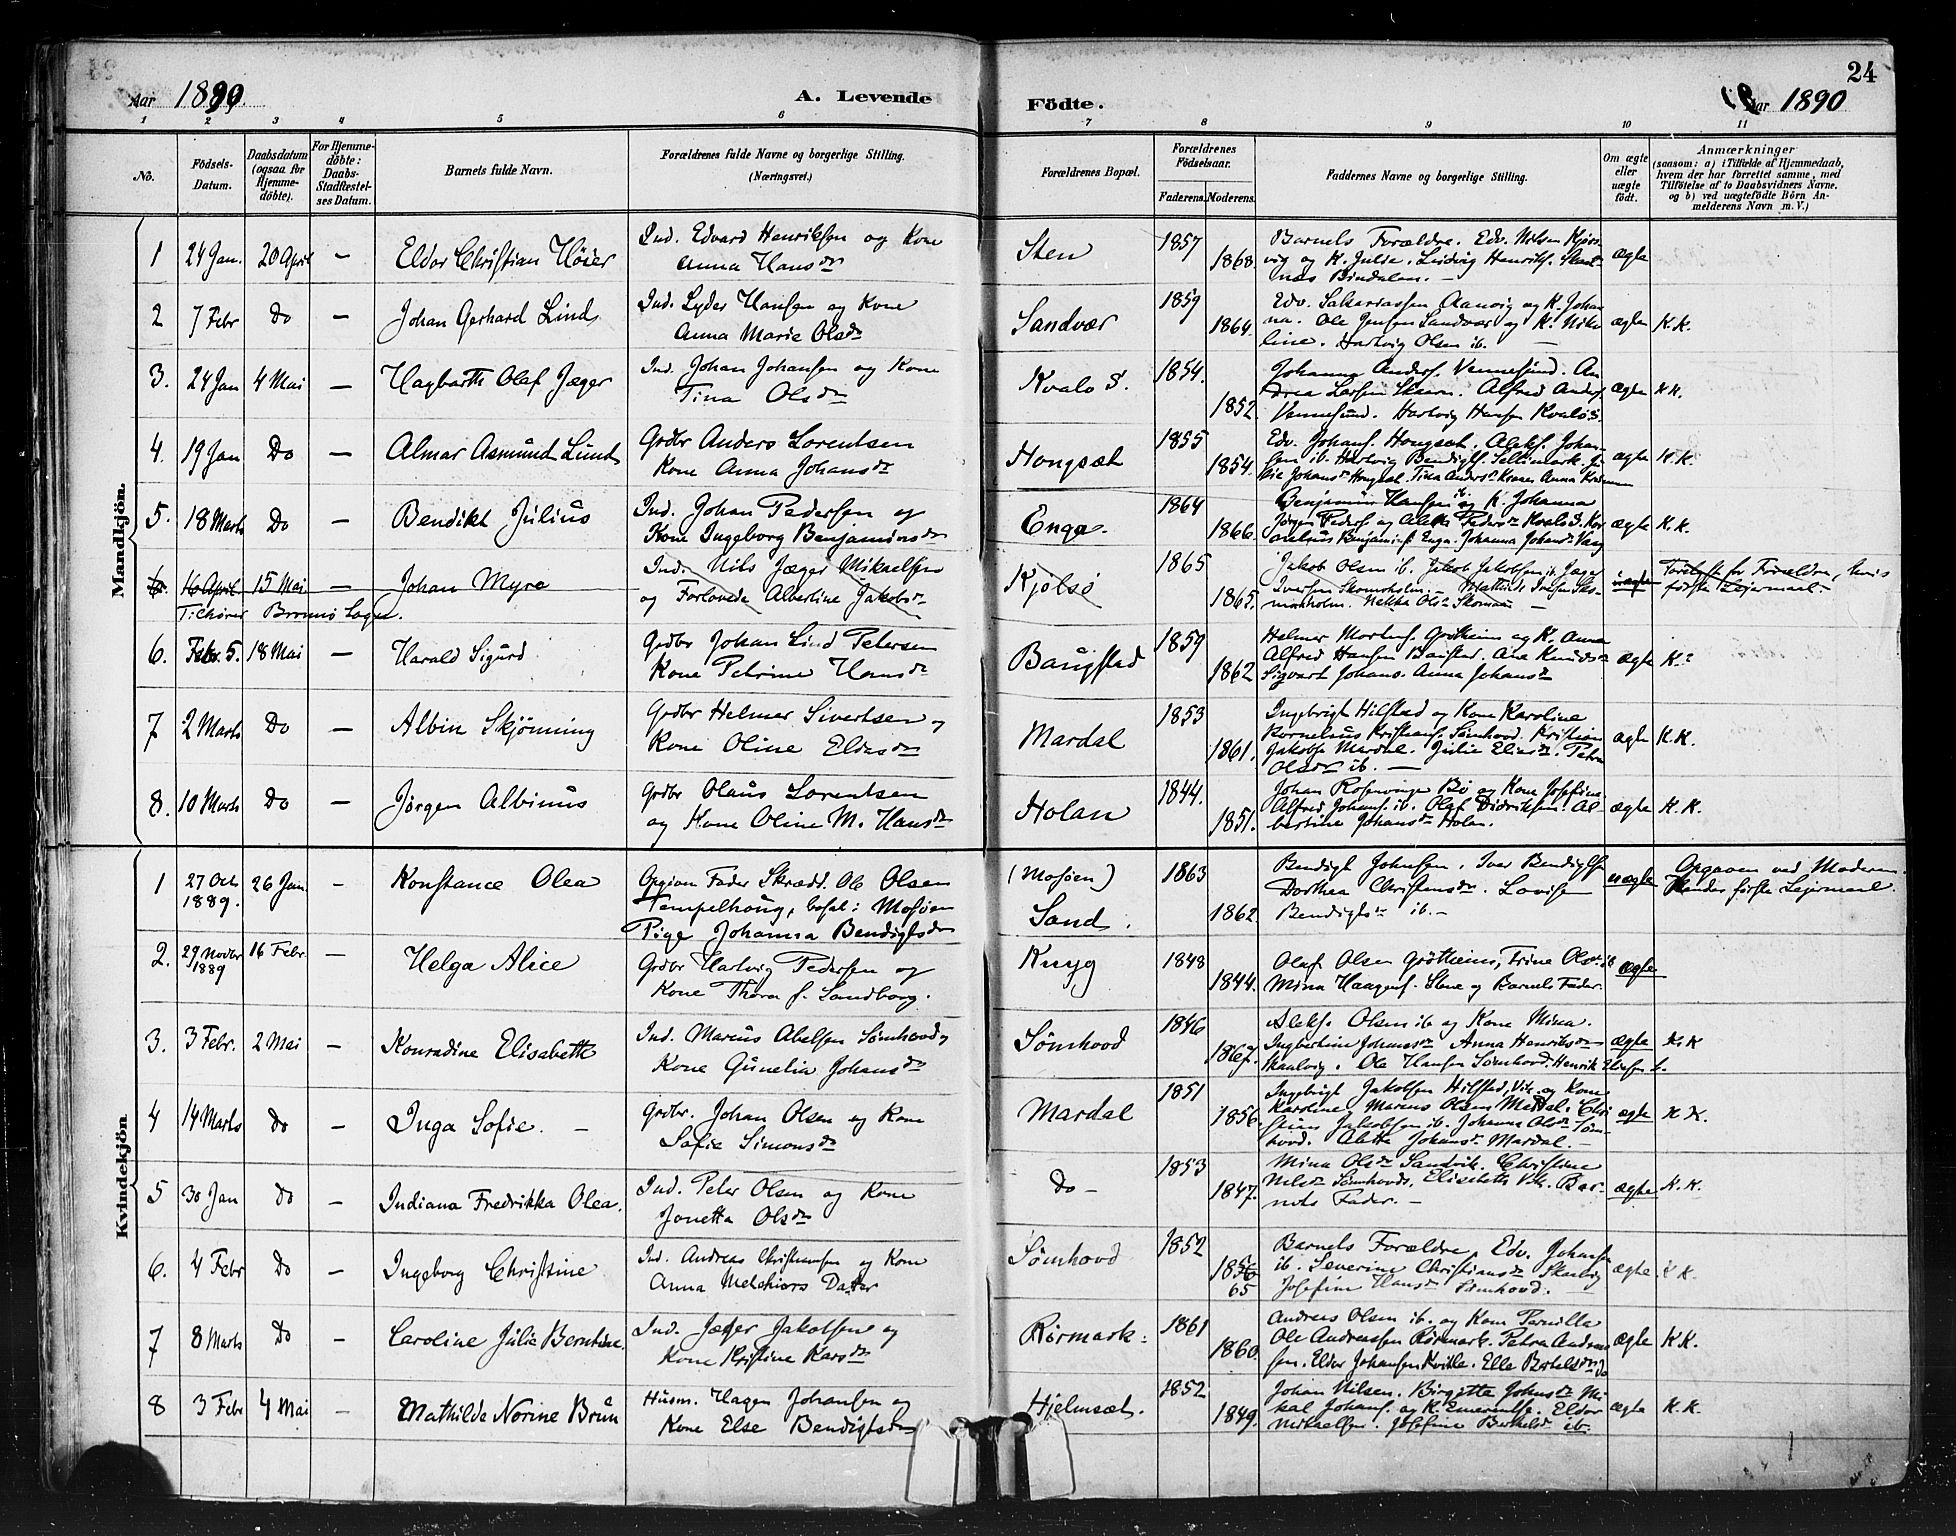 24
Aar 1890. A. Levende Födte. Aar 1890
1 2 3 4 5 6 7 8 9 10 11
No.
Födsels-Datum.
Daabsdatum (ogsaa for Hjemme-döbte).
For Hjemme-döbte: Daabs-Stadfæstel-ses Datum.
Barnets fulde Navn.
Forældrenes fulde Navne og borgerlige Stilling. (Næringsvei.)
Forældrenes Bopæl.
Forældrenes Födselsaar.
Faderens. Moderens.
Faddernes Navne og borgerlige Stilling.
Om ægte eller uægte födt.
Anmærkninger
(saasom: a) i Tilfælde af Hjemmedaab,
hvem der har forrettet samme, med
Tilföielse af to Daabsvidners Navne,
og b) ved uægtefödte Börn An-
melderens Navn m. V.)
Mandkjön.
1 24 Jan. 20 April — Eldor Christian Höier
Ind. Edvard Henriksen og Kone
Anna Hansdr
Sten 1857 1868.
Barnets Forældre. Edv. Nilsen
vig og K. Julie. Ludvig Henriks.
Bindalen. —
ægte
2 7 Febr Do — Johan Gerhard Lind
Ind. Lyder Hansen og Kone
Anna Marie Olsdr
Sandvær 1859 1864.
Edv. Sakariassen og K. Johan
na. Ole Jensen Sandvær og K. Niko
line. Hartvig Olsen ib. —
ægte K.K.
3. 24 Jan 4 Mai — Hagbarth Olaf Jæger
Ind. Johan Johansen og Kone
Tina Olsdr
Kvalö S. 1854. 1852.
Johanna Anders. Vennesund. An
drea Larsen. Alfred Anders.
Vennesund. Hartvig Hansen Kvalö S.
ægte K.K.
4. 19 Jan Do — Almar Asmund Lund
Grdbr Anders Lorentsen
Kone Anna Johansdr
Hongsæt 1855 1854.
Edv. Johans. Hongsæt. Aleks. Johan
sen ib. Hartvig Bendigts. Sellimark.
Johansdr Hongsæt. Tina Andersdr Anna
ægte K.K.
5. 18 Marts Do — Bendikt Julius
Ind. Johan Pedersen og
Kone Ingeborg Benjaminsdr
Enga. 1864 1866.
Benjamin Hansen ib. og K. Johanna
Jörgen Peders. og Pedersdr Kvalö S. Kor
nelius Benjamins. Enga. Johanna Johansdr Vang
ægte K.K.
6. 16 April 15 Mai — Johan Myre
Ind. Nils Jæger Mikaelsen
og Forlovede Albertine Jakobsdr
Kjölsö 1865 1865.
Jakob Olsen ib. Jakob Jakobsen ib. Jæger
Iversen Skomoholm. — Iversen Sko-
moholm. Olsdr —
uægte for Forældre, hvis
förste Leiermaal.
Tilhörer Brönnö Sogn.
6. Febr. 5. 18 Mai — Harald Sigurd
Grdbr Johan Lind Petersen
Kone Petrine Hansdr
Baugstad 1859 1862
Helmer Mortens. Grötheim og K. Anna
Alfred Hansen Baustad. Ane Knudsdr
Sigvart Johans. Anna Johansdr
ægte K.
7 2 Marts Do — Albin Skjönning
Grdbr Helmer Sivertsen og
Kone Oline Eldesdr
Mardal 1853 1861.
Ingebrigt Hilstad og Kone Karoline
Kornelius Kristians. Sömhood. Kristian
Jakobs. Mardal. Julie Eliasdr. Petra
Olsdr ib. —
ægte K.K.
8. 10 Marts Do — Jörgen Albinus
Grdbr Olaus Lorentsen
og Kone Oline M. Hansdr
Holan 1844. 1851.
Johan Rosenvinge Bö og Kone Josefine.
Alfred Johans. ib. Olaf Didriksen. Al-
bertine Johansdr Holan.
ægte K.K.
Kvindekjön
1 27 Oct 1889. 26 Jan. — Konstance Olea
Opgiven Fader Skrædd. Ole Olsen
Tempelhaug, bosat i Mosöen
Pige Johanna Bendigtsdr
(Mosöen) Sand. 1863 1862.
Bendigt Johnsen. Iver Bendigtsen
Dorthea Christensdr. Lovise
Bendigtsdr ib. —
uægte Opgaven ved Moderen.
Hendes förste Leiermaal.
2. 29 Novbr 1889 16 Febr. — Helga Alice
Grdbr Hartvig Pedersen og
Kone Thora f. Sandborg.
Kryg 1848 1844.
Olaf Olsen Grötheims, Trine Olsdr ib
Mina Haagens. Stene og Barnets Fader.
ægte
3. 3 Febr. 2 Mai — Konradine Elisabeth
Ind. Marcus Abelsen Sömhood og
Kone Gunelia Johansdr
Sömhood 1846 1867.
Aleks. Olsen ib og Kone Mina.
Ingbertine Johansdr Anna Henriksdr
Skaalvig. Ole Hansen Sömhood. Henrik
ægte K.K
4 14 Marts Do — Inga Sofie. —
Grdbr. Johan Olsen og Kone
Sofie Simonsdr
Mardal 1851 1856.
Ingebrigt Jakobsen Hilstad, Vik og Kone
Karoline, Marcus Olsen Mardal. Chri
stian Jakobsen ib. Johanna Olsdr Söm-
hood. Aletta Johansdr Mardal. —
ægte K.K.
5 30 Jan Do — Indiana Fredrikka Olea.
Ind. Peter Olsen og Kone
Jonetta Olsdr
Do — 1853 1847.
Mina Olsdr Sandvik. Christine
Nilsdr Sömhood. Elisabeth Vik. Bar-
nets Fader. —
ægte K.K.
6. 4 Febr Do — Ingeborg Christine
Ind. Andreas Christensen og Kone
Anna Melchiors Datter
Sömhovd 1852 1856 65
Barnets Forældre, Edv. Johansen
ib. Severine Christiansdr Skaalvig
Josefine Hansdr Sömhovd. —
ægte K.K.
7 8 Marts Do — Caroline Julie Berntine.
Ind. Jæger Jakobsen og
Kone Kristine Larsdr
Rörmark. 1861 1860.
Andreas Olsen ib. og Kone Pernilla
Ole Andreassen Rörmark. Petra Andreas
sen. Eldor Johansen Kville. Elle Bertelsdr do
ægte K.K.
8 3 Febr 4 Mai — Mathilde Norine Brun
Husm. Hagen Johansen og
Kone Else Bendigtsdr
Hjelmsæt. 1852 1849.
Johan Nilsen. Birgitte Johnsdr Mi
kal Johans. og K. Emerentse. Eldor
Mikaelsen. Josefine Bertelsdr ib.
ægte K.K.